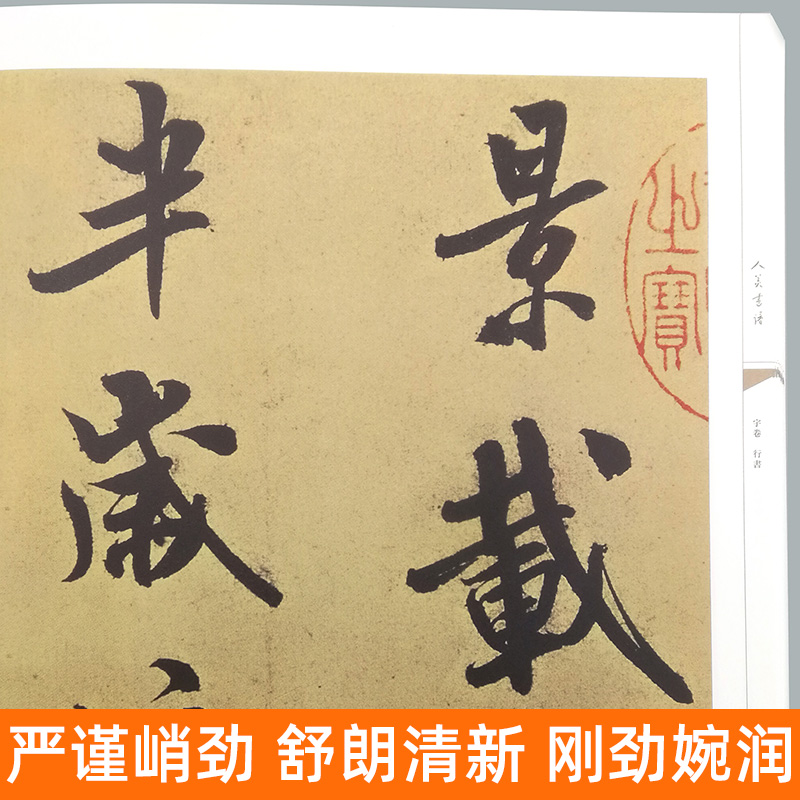 景載
半歲
寶
人美書譜
宇卷 行書
严谨峭劲 舒朗清新 刚劲婉润